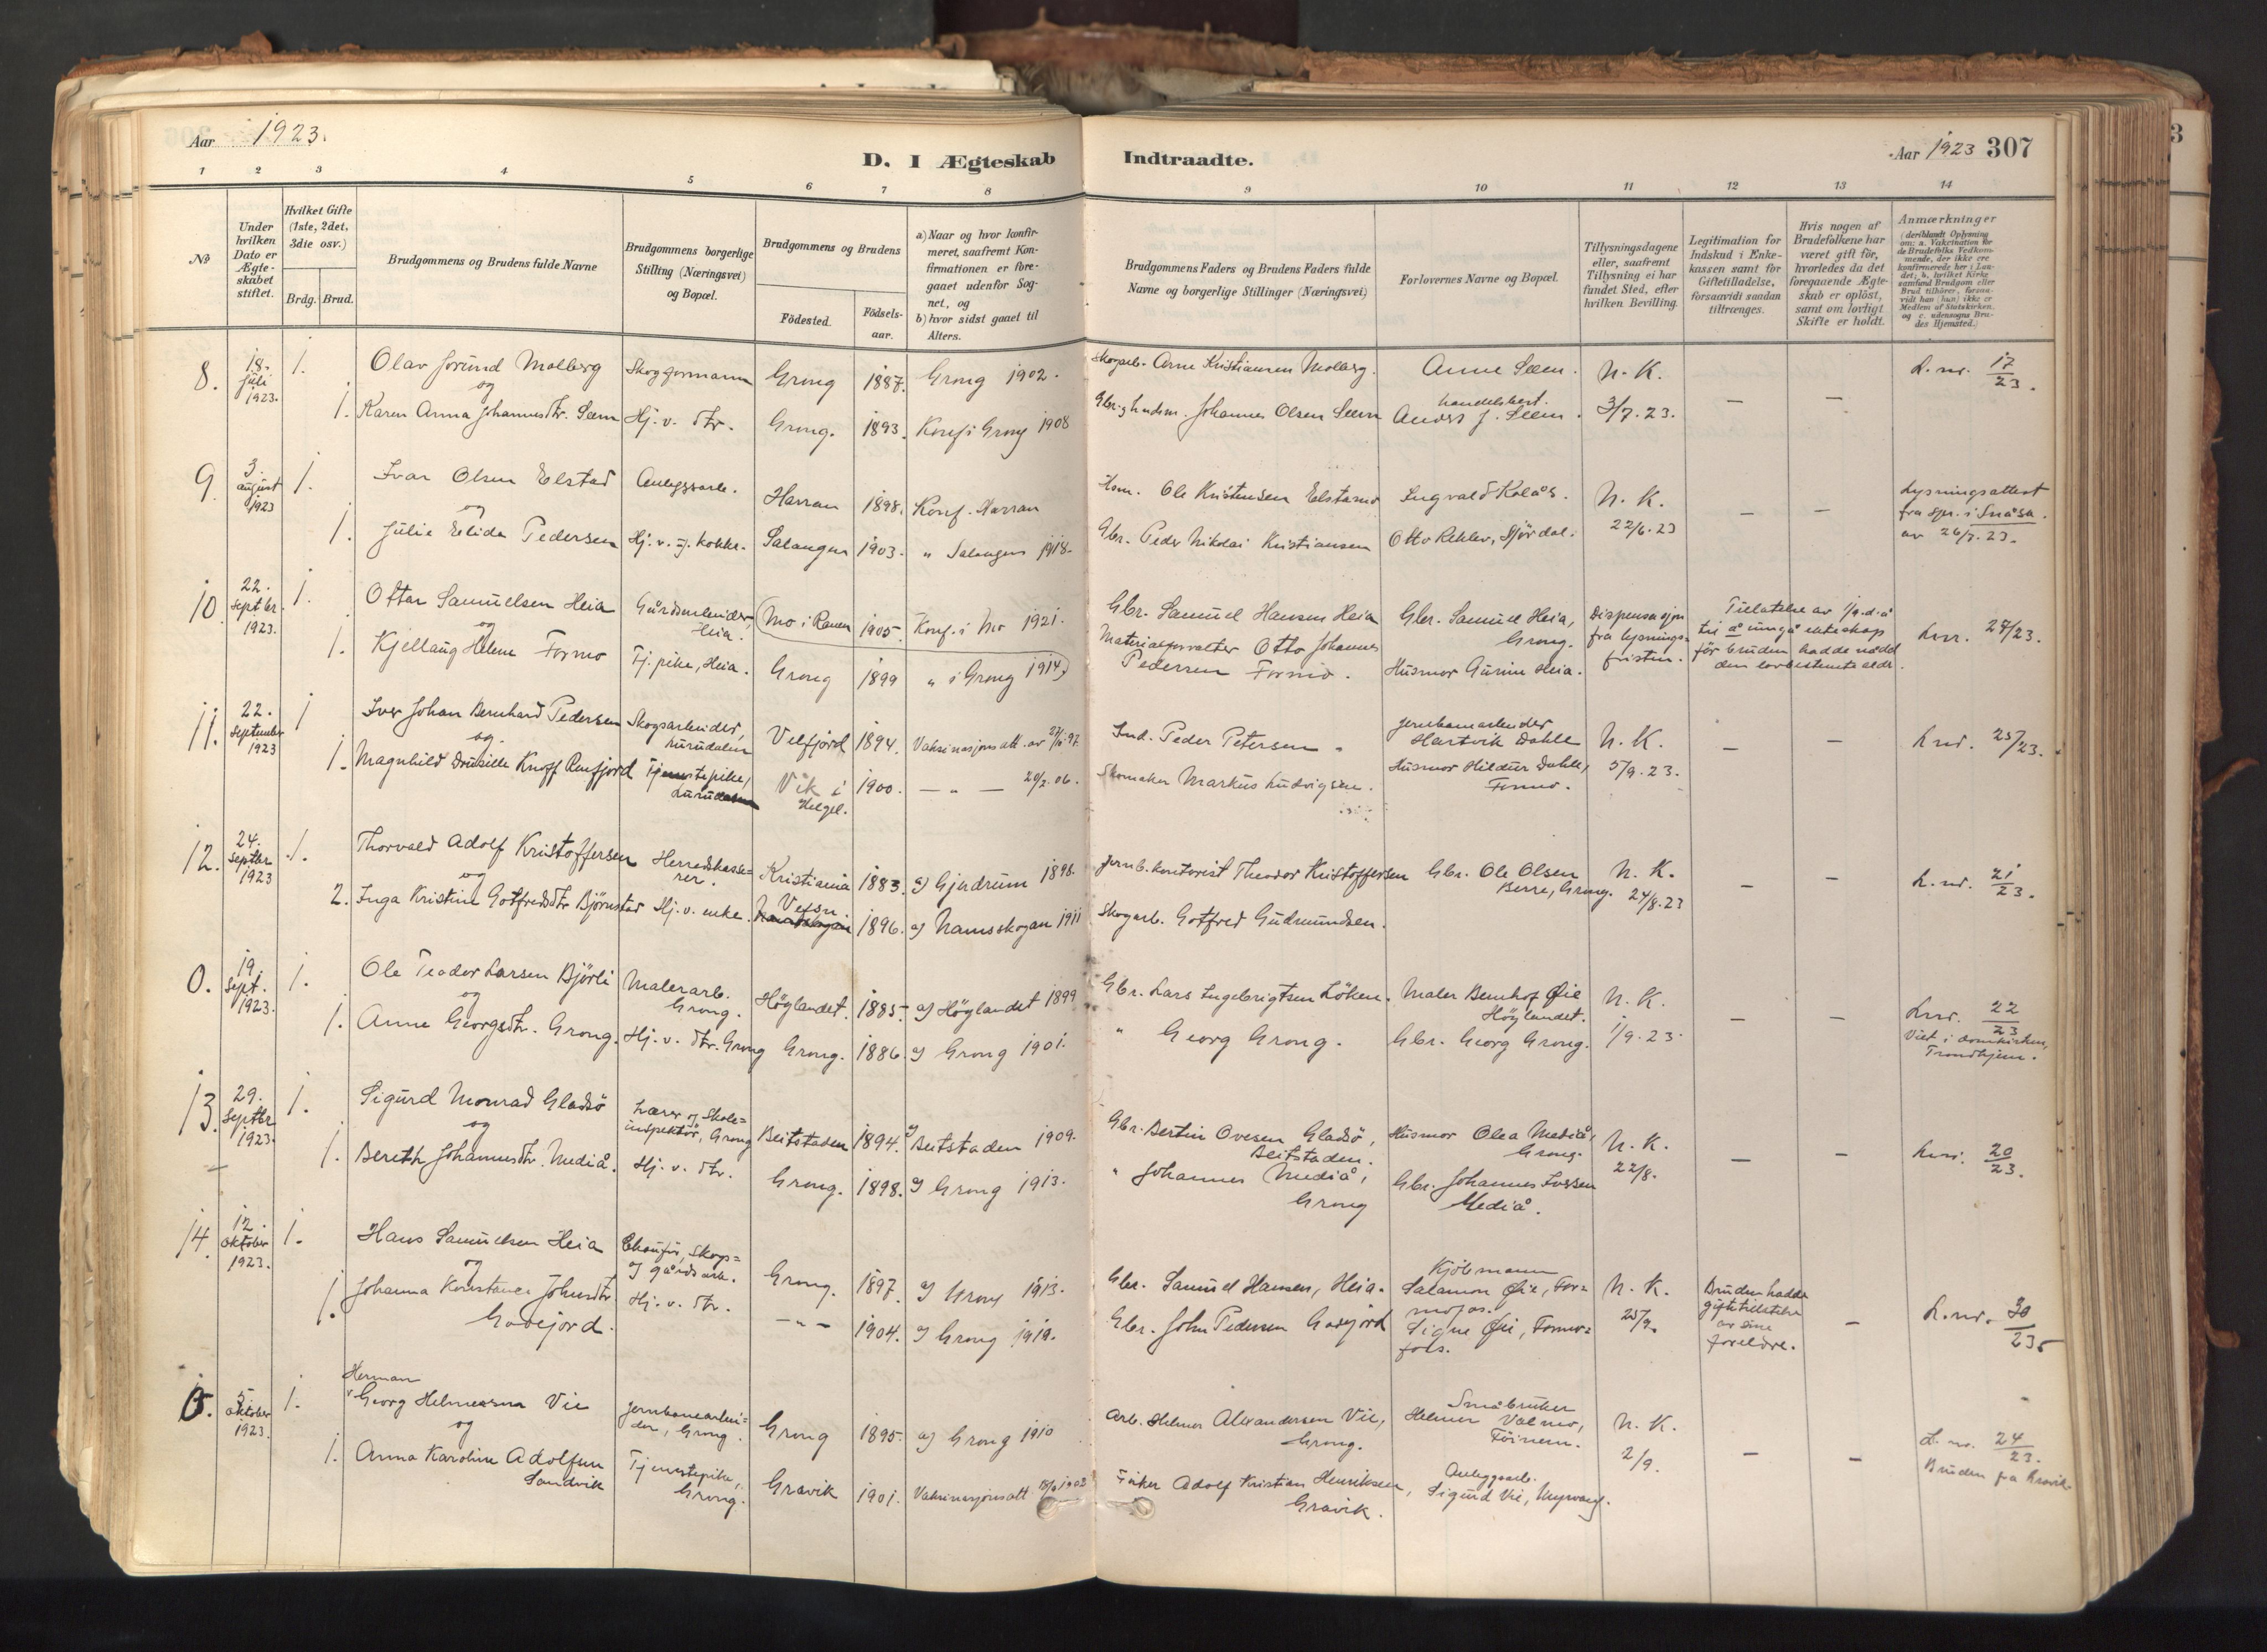 Aar 1923.
D. I Ægteskab Indtraadte.
Aar 1923 307
1 2 3 4 5 6 7 8 9 10 11 12 13 14
No
Under hvilken Dato er Ægteskabet stiftet.
Hvilket Gifte (1ste, 2det, 3die osv.)
Brdg. Brud.
Brudgommens og Brudens fulde Navne
Brudgommens borgerlige Stilling (Næringsvei) og Bopæl.
Brudgommens og Brudens
Födested.
Födsels-aar.
a) Naar og hvor konfirmeret, saafremt Konfirmationen er foregaaet udenfor Sognet, og
b) hvor sidst gaaet til Alters.
Brudgommens Faders og Brudens Faders fulde Navne og borgerlige Stillinger (Næringsvei)
Forlovernes Navne og Bopæl.
Tillysningsdagene eller, saafremt Tillysning ei har fundet Sted, efter hvilken Bevilling.
Legitimation for Indskud i Enkekassen samt for Giftetilladelse, forsaavidt saadan tiltrænges.
Hvis nogen af Brudefolkene har været gift för, hvorledes da det foregaaende Ægteskab er oplöst, samt om lovligt Skifte er holdt.
Anmærkninger (deriblandt Oplysning om: a. Vakcination for de Brudefolks Vedkommende, der ikke ere konfirmerede her i Landet; b. hvilket Kirkesamfund Brudgom eller Brud tilhörer, forsaavidt han (hun) ikke er Medlem af Statskirken, og c. udensogns Brudes Hjemsted.)
8. 18. juli 1923. 1. Olav Jorund Molberg Grong 1887. Grong 1902. Skogarb. Arne Kristiansen Molberg. Anne Seem. N. K. L. nr. 17/23.
og
1. Karen Anna Johannesdtr. Seem Hj. v. dtr. Grong. 1893. Konf. i Grong 1908 Johannes Olsen Seem handelsbest. Anders J. Seem. 3/7. 23. — —
9. 3. august 1923 1. Ivar Olsen Elstad Anleggsarb. Harran 1898. Konf. Harran Ole Kristensen Elstamo Ingvald Kolås. N. K. Lysningsattest
og
1. Julie Elida Pedersen Hj. v. kokke. Salangen 1903. " Salangen 1918. Gbr. Peder Nikolai Kristiansen 22/6. 23 — — fra spr. i Snåsa. av 26/7. 23.
10 22. septbr. 1923. 1. Ottar Samuelsen Heia Gårdsarbeider, Heia. Mo i Ranen 1905. Konf. i Mo 1921. Gbr. Samuel Hansen Heia Gbr. Samuel Heia, Grong. Dispensasjon fra lysningsfristen.
og
1. Kjellaug Helene Formo Tj. pike, Heia. Grong 1899 " i Grong 1914 Materialforvalter Otto Johannes Pedersen Formo. Husmor Gurine Heia. til å inngå ekteskap før bruden hadde nådd den lovbestemte alder. Lnr. 24/23.
11. 22. September 1923 1 Iver Johan Bernhard Pedersen Skogsarbeider, Lurudalen Velfjord 1894. Vaksinasjonsatt. av Ind. Peder Petersen. jernbanearbeider Hartvik Dahle N. K. — — Lnr. 25/23.
og
1. Magnhild Drusille Knoff Renfjord Tjenestepike, Lurudalen Vik i Helgel. 1900. — " — 20/2. 06. Skomaker Markus Ludvigsen. Husmor Hildur Dahle, Formo. 5/9. 23.
12. 24. Septbr 1923 1. Thorvald Adolf Kristoffersen Herredskasserer. Kristiania 1883. og Gjerdrum 1898. Jernb. kontorist Theodor Kristoffersen Gbr. Ole Olsen Berre, Grong. N. K. 24/8. 23 — — L. nr. 21/23.
og
2. Inga Kristine Gotfredsdtr Björnstad Hj. v. enke. Vefsn. 1896. og Namsskogan 1911 Skogarb. Gotfred Gudmundsen.
0. 19. Sept. 1923. 1. Ole Teodor Larsen Björli Malerarb. Grong. Höylandet. 1885. og Höylandet 1899 Gbr. Lars Ingebrigtsen Löken. Maler Bernhof Öie Höylandet. N. K. Lnr. 22/23
og
1. Anne Georgsdtr. Grong. Hj. v. dtr. Grong Grong. 1886. og Grong 1901. " Georg Grong. Gbr. Georg Grong. 1/9. 23. — — Viet i domkirken, Trondhjem.
13. 29. Septbr 1923. 1. Sigurd Monrad Gladsö Lærer og Skoleinspektör, Grong Beitstaden 1894. og Beitstaden 1909. Gbr. Bertin Ovesen Gladsö, Beitstaden. Husmor Olea Mediå, Grong. N. K.
og
1. Bereth Johannesdtr. Mediå. Hj. v. dtr. Grong. 1898. og Grong 1913. " Johannes Mediå, Grong Gbr. Johannes Iversen Mediå. 22/8. — — Lnr. 20/23.
14. 12. oktober 1923. 1. Hans Samuelsen Heia Skogs- og gårdsarb. Grong. 1897. og Grong 1913. Gbr. Samuel Hansen, Heia. Kjöbmann Salamon Öie, Formofos. N. K. Bruden hadde giftetillatelse av sine foreldre. — L. nr. 30/23.
og
1. Johanna Konstance Johnsdtr Gåsejord. Hj. v. dtr. — " — 1904. og Grong 1919. Gbr. John Pedersen Gåsejord Signe Öie, Formofoss. 25/9.
15. 5. oktober 1923. 1. Herman Georg Helmersen Vie jernbanearbeider, Grong. Grong 1895. og Grong 1910 Arb. Helmer Alexandersen Vie, Grong. Småbruker Helmer Valmo, N. K. L. nr. 24/23.
og
1. Anna Karoline Adolfsen Sandvik Tjenestepike, Grong. Gravik 1901. Vaksinasjonsatt. Fisker Adolf Kristian Henriksen, Gravik. Anleggsarb. Sigurd Vie, 2/9. — — Bruden fra